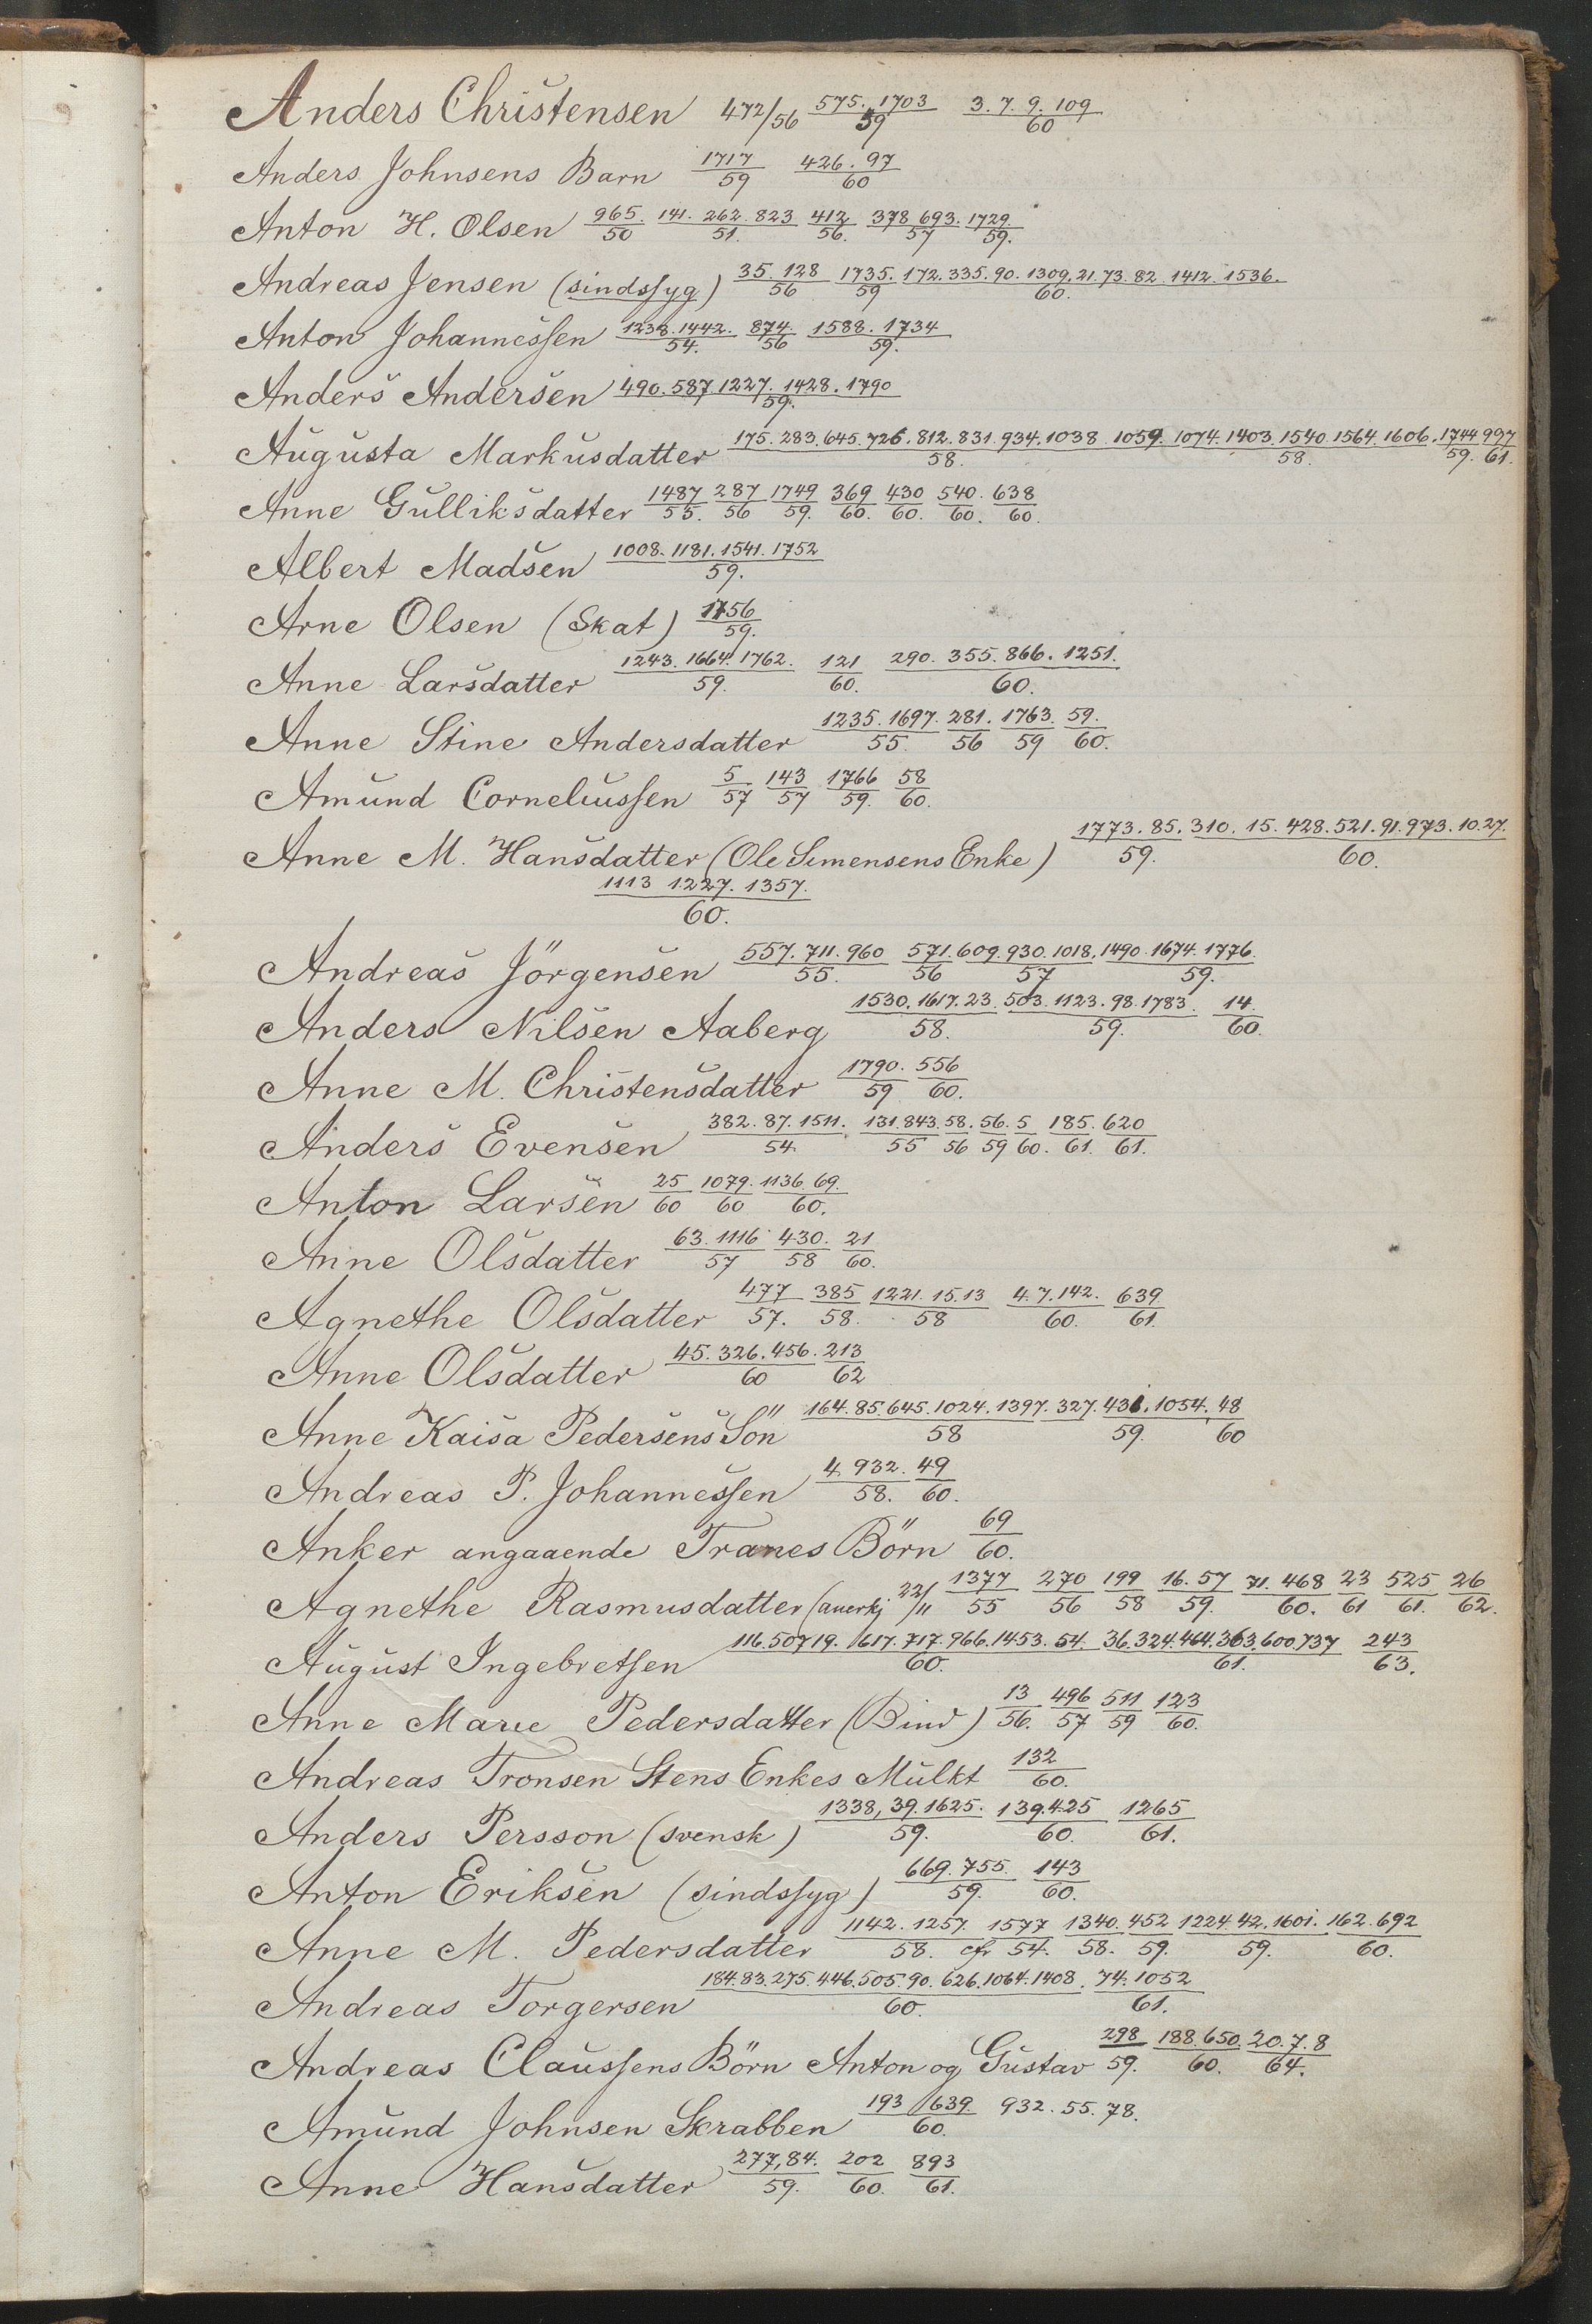 Anders Christensen 472/56 575. 1703/59 3. 7. 9. 109/60
Anders Johnsens Barn 1717/59 426. 97/60
Anton H. Olsen 965./50 141. 262. 823/51. 412/56. 378 693./57 1729/59.
Andreas Jensen (sindssyg) 35. 128/56 1735./59 172. 335. 90. 1309. 21. 73. 82. 1412. 1536./60.
Anton Johannessen 1238. 1442./54. 874./56 1588. 1734/59.
Anders Andersen 490. 587. 1227. 1428. 1790/59.
Augusta Markusdatter 175. 283. 645. 726. 812. 831. 934. 1038 1059./58. 1074. 1403. 1540. 1564. 1606./58. 1744/59. 997/61.
Anne Gulliksdatter 1487/55. 287/56 1749/59. 369/60. 430/60. 540./60. 638/60.
Albert Madsen 1008. 1181. 1541. 1752/59.
Arne Olsen (Skat) 1756/59.
Anne Larsdatter 1243. 1664. 1762./59. 121/60. 290. 355. 866. 1251./60.
Anne Stine Andersdatter 1235. 1697./55. 281./56 1763./59 59./60.
Amund Corneliussen 5/57 143/57 1766/59. 58/60.
Anne M. Hansdatter (Ole Simensens Enke) 1773. 85./59. 310. 15. 428. 521. 91. 973. 10.27./60.
1113 1227. 1357./60.
Andreas Jörgensen 557. 711. 960/55. 571./56 609. 930. 1018./57 1490. 1674. 1776./59.
Anders Nilsen Aaberg 1530. 1617. 23./58. 503. 1123. 98. 1783./59. 14./60.
Anne M. Christensdatter 1790./59 556/60.
Anders Evensen 382. 87. 1511./54. 131. 843./55 58./56 56./59 5/60. 185./61. 620/61.
Anton Larsen 25/60 1079./60 1136. 69./60.
Anne Olsdatter 63. 1116/57 430./58 21/60.
Agnethe Olsdatter 477/57. 385/58. 1221. 15.13/58 4. 7. 142./60. 639/61.
Anne Olsdatter 45. 326. 456./60 213/62
Anne Kaisa Pedersens Sön 164. 85. 645. 1024. 1397./58 327. 431. 1054./59. 48/60
Andreas P. Johannessen 4. 932./58. 49/60.
Anker angaaende Tranes Börn 69/60.
Agnethe Rasmusdatter (anerkj 22/11 1377/55 270/56 199/58 16. 57/59. 71. 468/60. 23/61 525/61. 26/62.
August Ingebretsen 116. 507 19. 1617. 717. 966. 1453. 54./60. 36. 324. 464. 363. 600. 737/61. 243/63.
Anne Marie Pedersdatter (Bind) 13/56. 496/57 511/59 123/60.
Andreas Tronsen Stens Enkes Mulkt 132/60.
Anders Persson (svensk) 1338, 39. 1625./59. 139. 425/60. 1265/61.
Anton Eriksen (sindssyg) 669. 755./59. 143/60.
Anne M. Pedersdatter 1142. 1257./58. cfr 1577/54. 1340./58. 452/59. 1224. 42. 1601./59. 162. 692/60.
Andreas Torgersen 184. 83. 275. 446. 505. 90. 626. 1064. 1408./60. 74. 1052/61.
Andreas Claussens Börn Anton og Gustav 298/59. 188. 650./60. 20. 7. 8/64.
Amund Johnsen Skrabben 193 1639./60. 932. 55. 78.
Anne Hansdatter 277, 84./59. 202/60. 893/61.